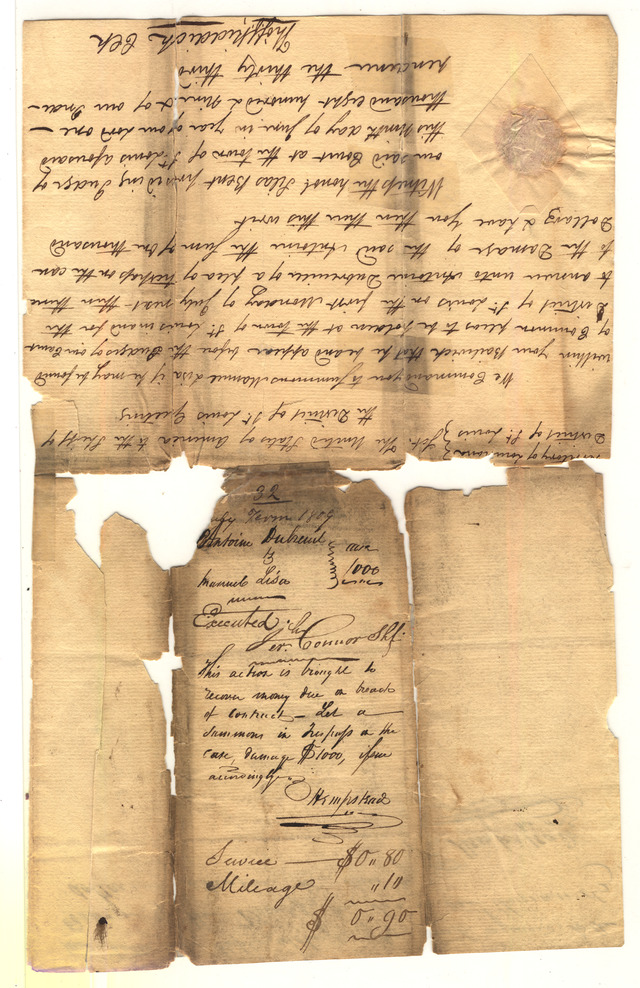 Territory of Louisiana }
District of St. Louis } Sct. The United States of America to the Sheriff of
the District of St. Louis Greeting
We Command you to Summons Manuel Lisa if he may be found
within your Bailiwick that he be and appear before the Judges of our Court
of Common pleas to be holden at the town of St. Louis in and for the
District of St. Louis on the first Monday of July next then & there
to answer unto Antoine Dubreuil of a plea of trespass on the case
to the Damage of the said Antoine the Sum of One thousand
Dollars & have you then there this writ
Witness the honbl. Silas Bent presiding Judge of
our said Court at the town of St. Louis aforesaid
this Ninth day of June in year of our Lord one
thousand eight hundred & nine & of our Inde-
pendence the thirty third
Thos. F. Riddick Clk
32
July Term 1809
Antoine Dubreuil
vs
Manuel Lisa
case
1000
Executed
Jer. Connor Shff.
This action is brought to
recover money due on breach
of contract – Let a
summons in Trespass on the
case, damage $1000, issue
accordingly
E Hempstead
Service — $0 " 80
Mileage " 10
$ 0 " 90